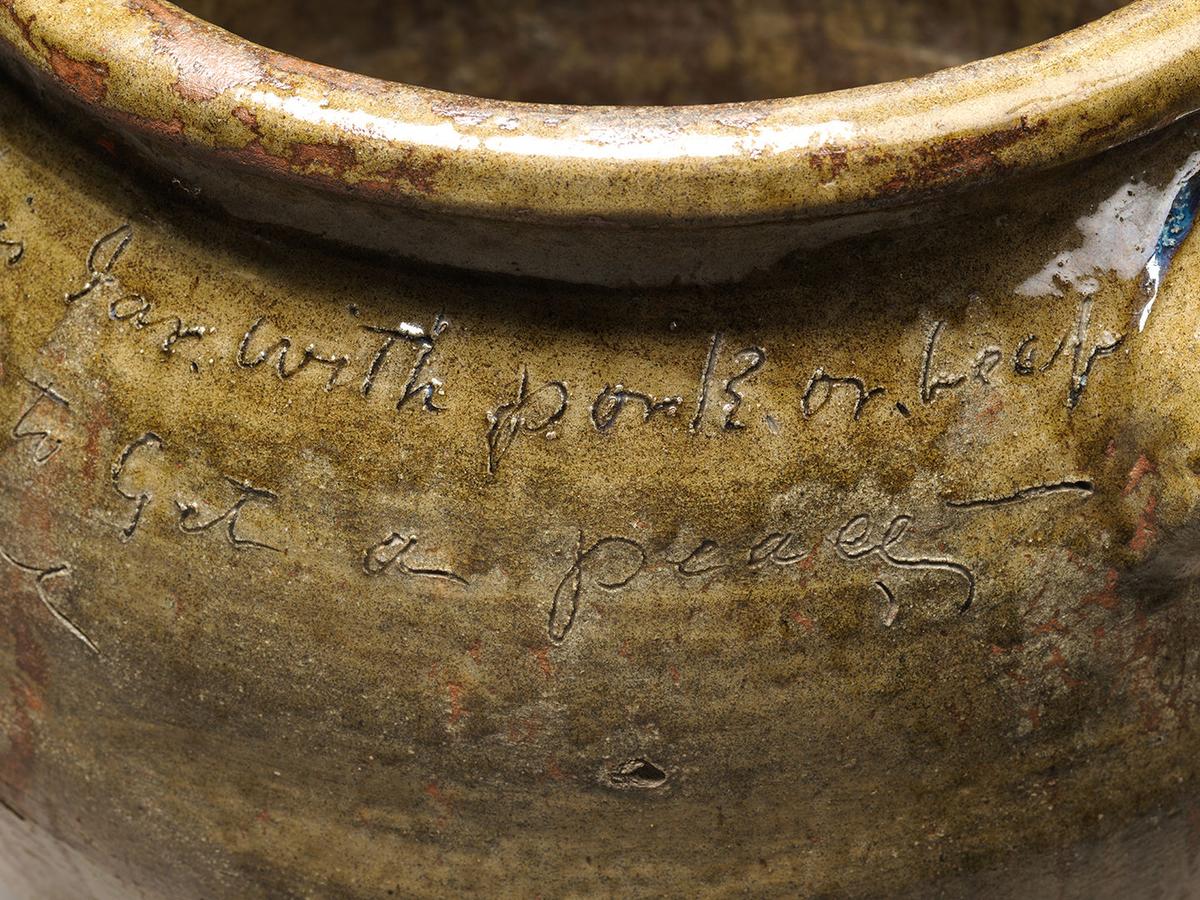 Jar. with pork. or. beef —
to Get a peace,